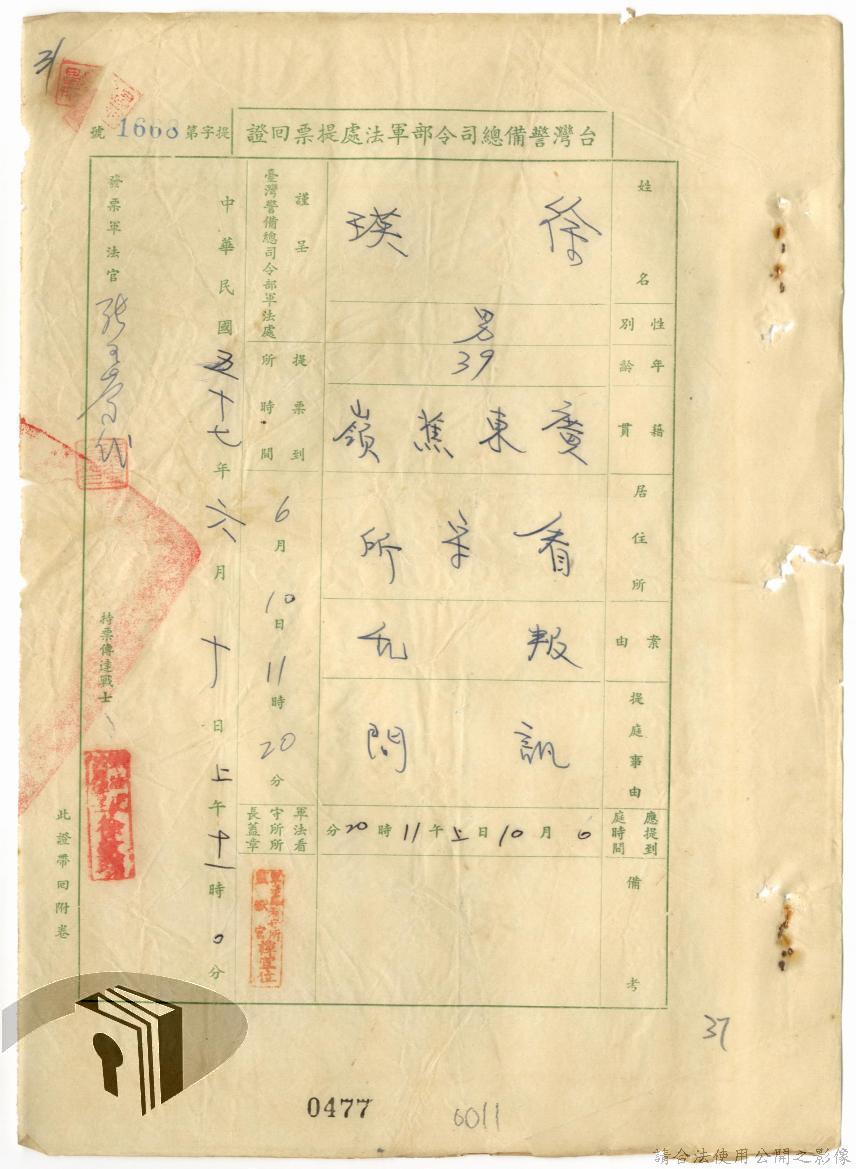 31
台灣警備總司令部軍法處提票回證
提字第1668號
姓名 徐瑛
性別 男
年齡 39
籍貫 廣東蕉嶺
居住所 看守所
案由 叛乱
提庭事由 訊問
應提到庭時間 6月10日上午11時20分
備考
謹呈
臺灣警備總司令部軍法處
提票到所時間 6月10日11時20分
軍法看守所所長蓋章
中華民國五十七年六月十日上午十一時0分
發票軍法官
持票傳達戰士
此證帶回附卷
37
0477
6011
請合法使用公開之影像